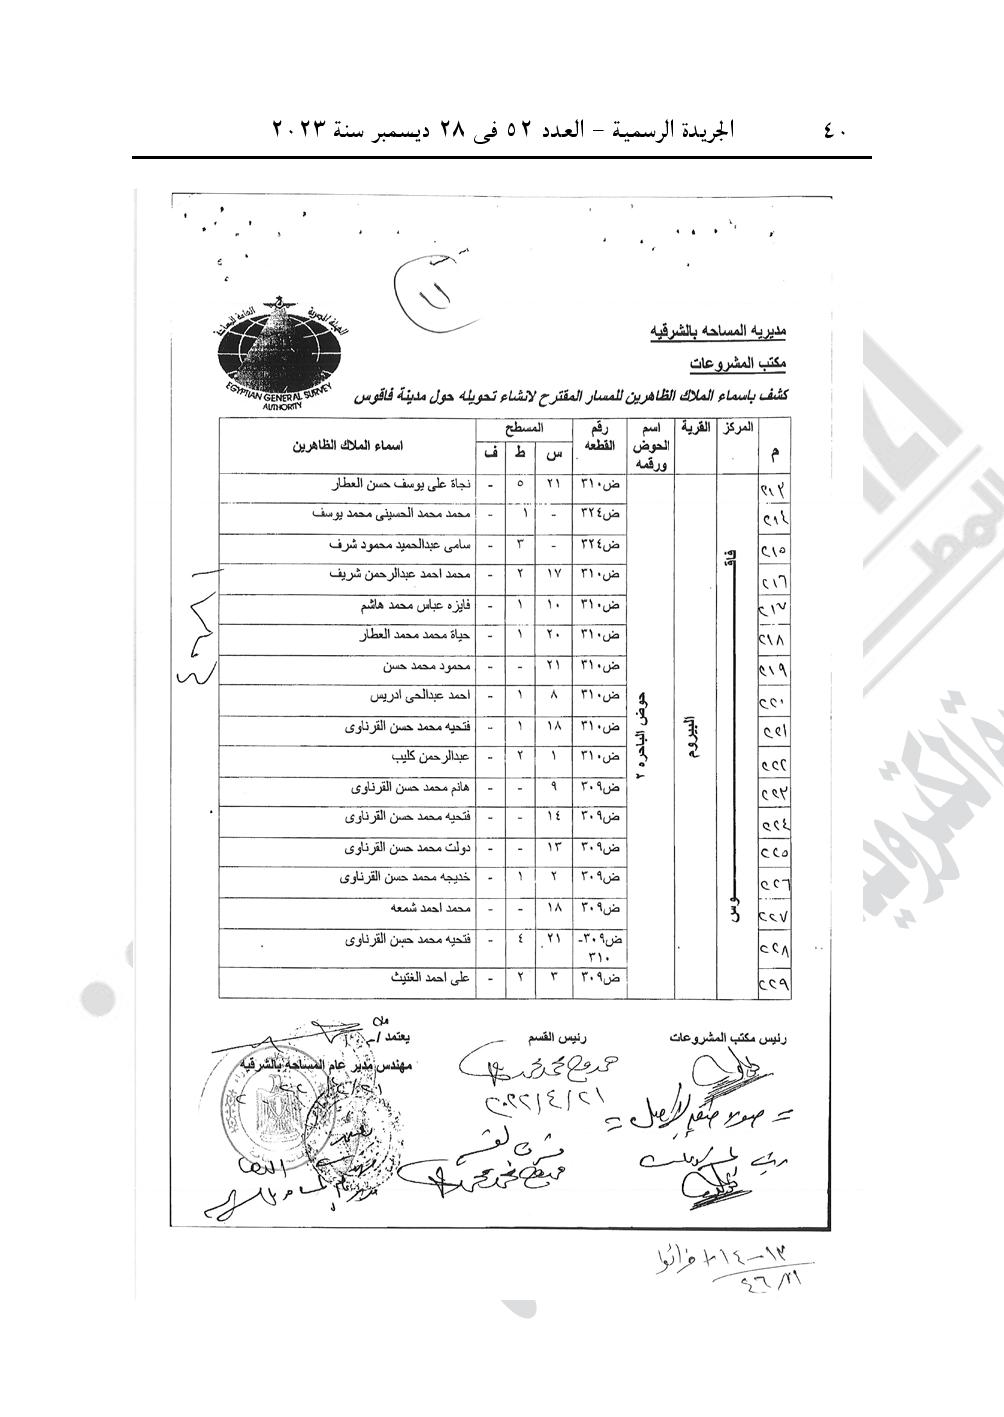 ٤٠ الجريدة الرسمية – العدد ٥٢ فى ٢٨ ديسمبر سنة ٢٠٢٣
١١
الهيئة المصرية العامة للمساحة
EGYPTIAN GENERAL SURVEY
AUTHORITY
مديريه المساحه بالشرقيه
مكتب المشروعات
كشف باسماء الملاك الظاهرين للمسار المقترح لانشاء تحويله حول مدينة فاقوس
م المركز القرية اسم الحوض ورقمه رقم القطعه المسطح س ط ف اسماء الملاك الظاهرين
فاقوس
البيروم
حوض الباحره ٢
٢١٣ ض٣١٠ ٢١ ٥ - نجاة على يوسف حسن العطار
٢١٤ ض٣٢٤ - ١ - محمد محمد الحسينى محمد يوسف
٢١٥ ض٣٢٤ - ٣ - سامى عبدالحميد محمود شرف
٢١٦ ض٣١٠ ١٧ ٢ - محمد احمد عبدالرحمن شريف
٢١٧ ض٣١٠ ١٠ ١ - فايزه عباس محمد هاشم
٢١٨ ض٣١٠ ٢٠ ١ - حياة محمد محمد العطار
٢١٩ ض٣١٠ ٢١ - - محمود محمد حسن
٢٢٠ ض٣١٠ ٨ ١ - احمد عبدالحى ادريس
٢٢١ ض٣١٠ ١٨ ١ - فتحيه محمد حسن القرناوى
٢٢٢ ض٣١٠ ١ ٢ - عبدالرحمن كليب
٢٢٣ ض٣٠٩ ٩ - - هانم محمد حسن القرناوى
٢٢٤ ض٣٠٩ ١٤ - - فتحيه محمد حسن القرناوى
٢٢٥ ض٣٠٩ ١٣ - - دولت محمد حسن القرناوى
٢٢٦ ض٣٠٩ ٢ ١ - خديجه محمد حسن القرناوى
٢٢٧ ض٣٠٩ ١٨ - - محمد احمد شمعه
٢٢٨ ض٣٠٩-٣١٠ ٢١ ٤ - فتحيه محمد حسن القرناوى
٢٢٩ ض٣٠٩ ٣ ٢ - على احمد الغتيث
رئيس مكتب المشروعات رئيس القسم يعتمد /
مهندس مدير عام المساحه بالشرقيه
٢٠٢٢/٤/٢١
= صورة طبق الاصل =